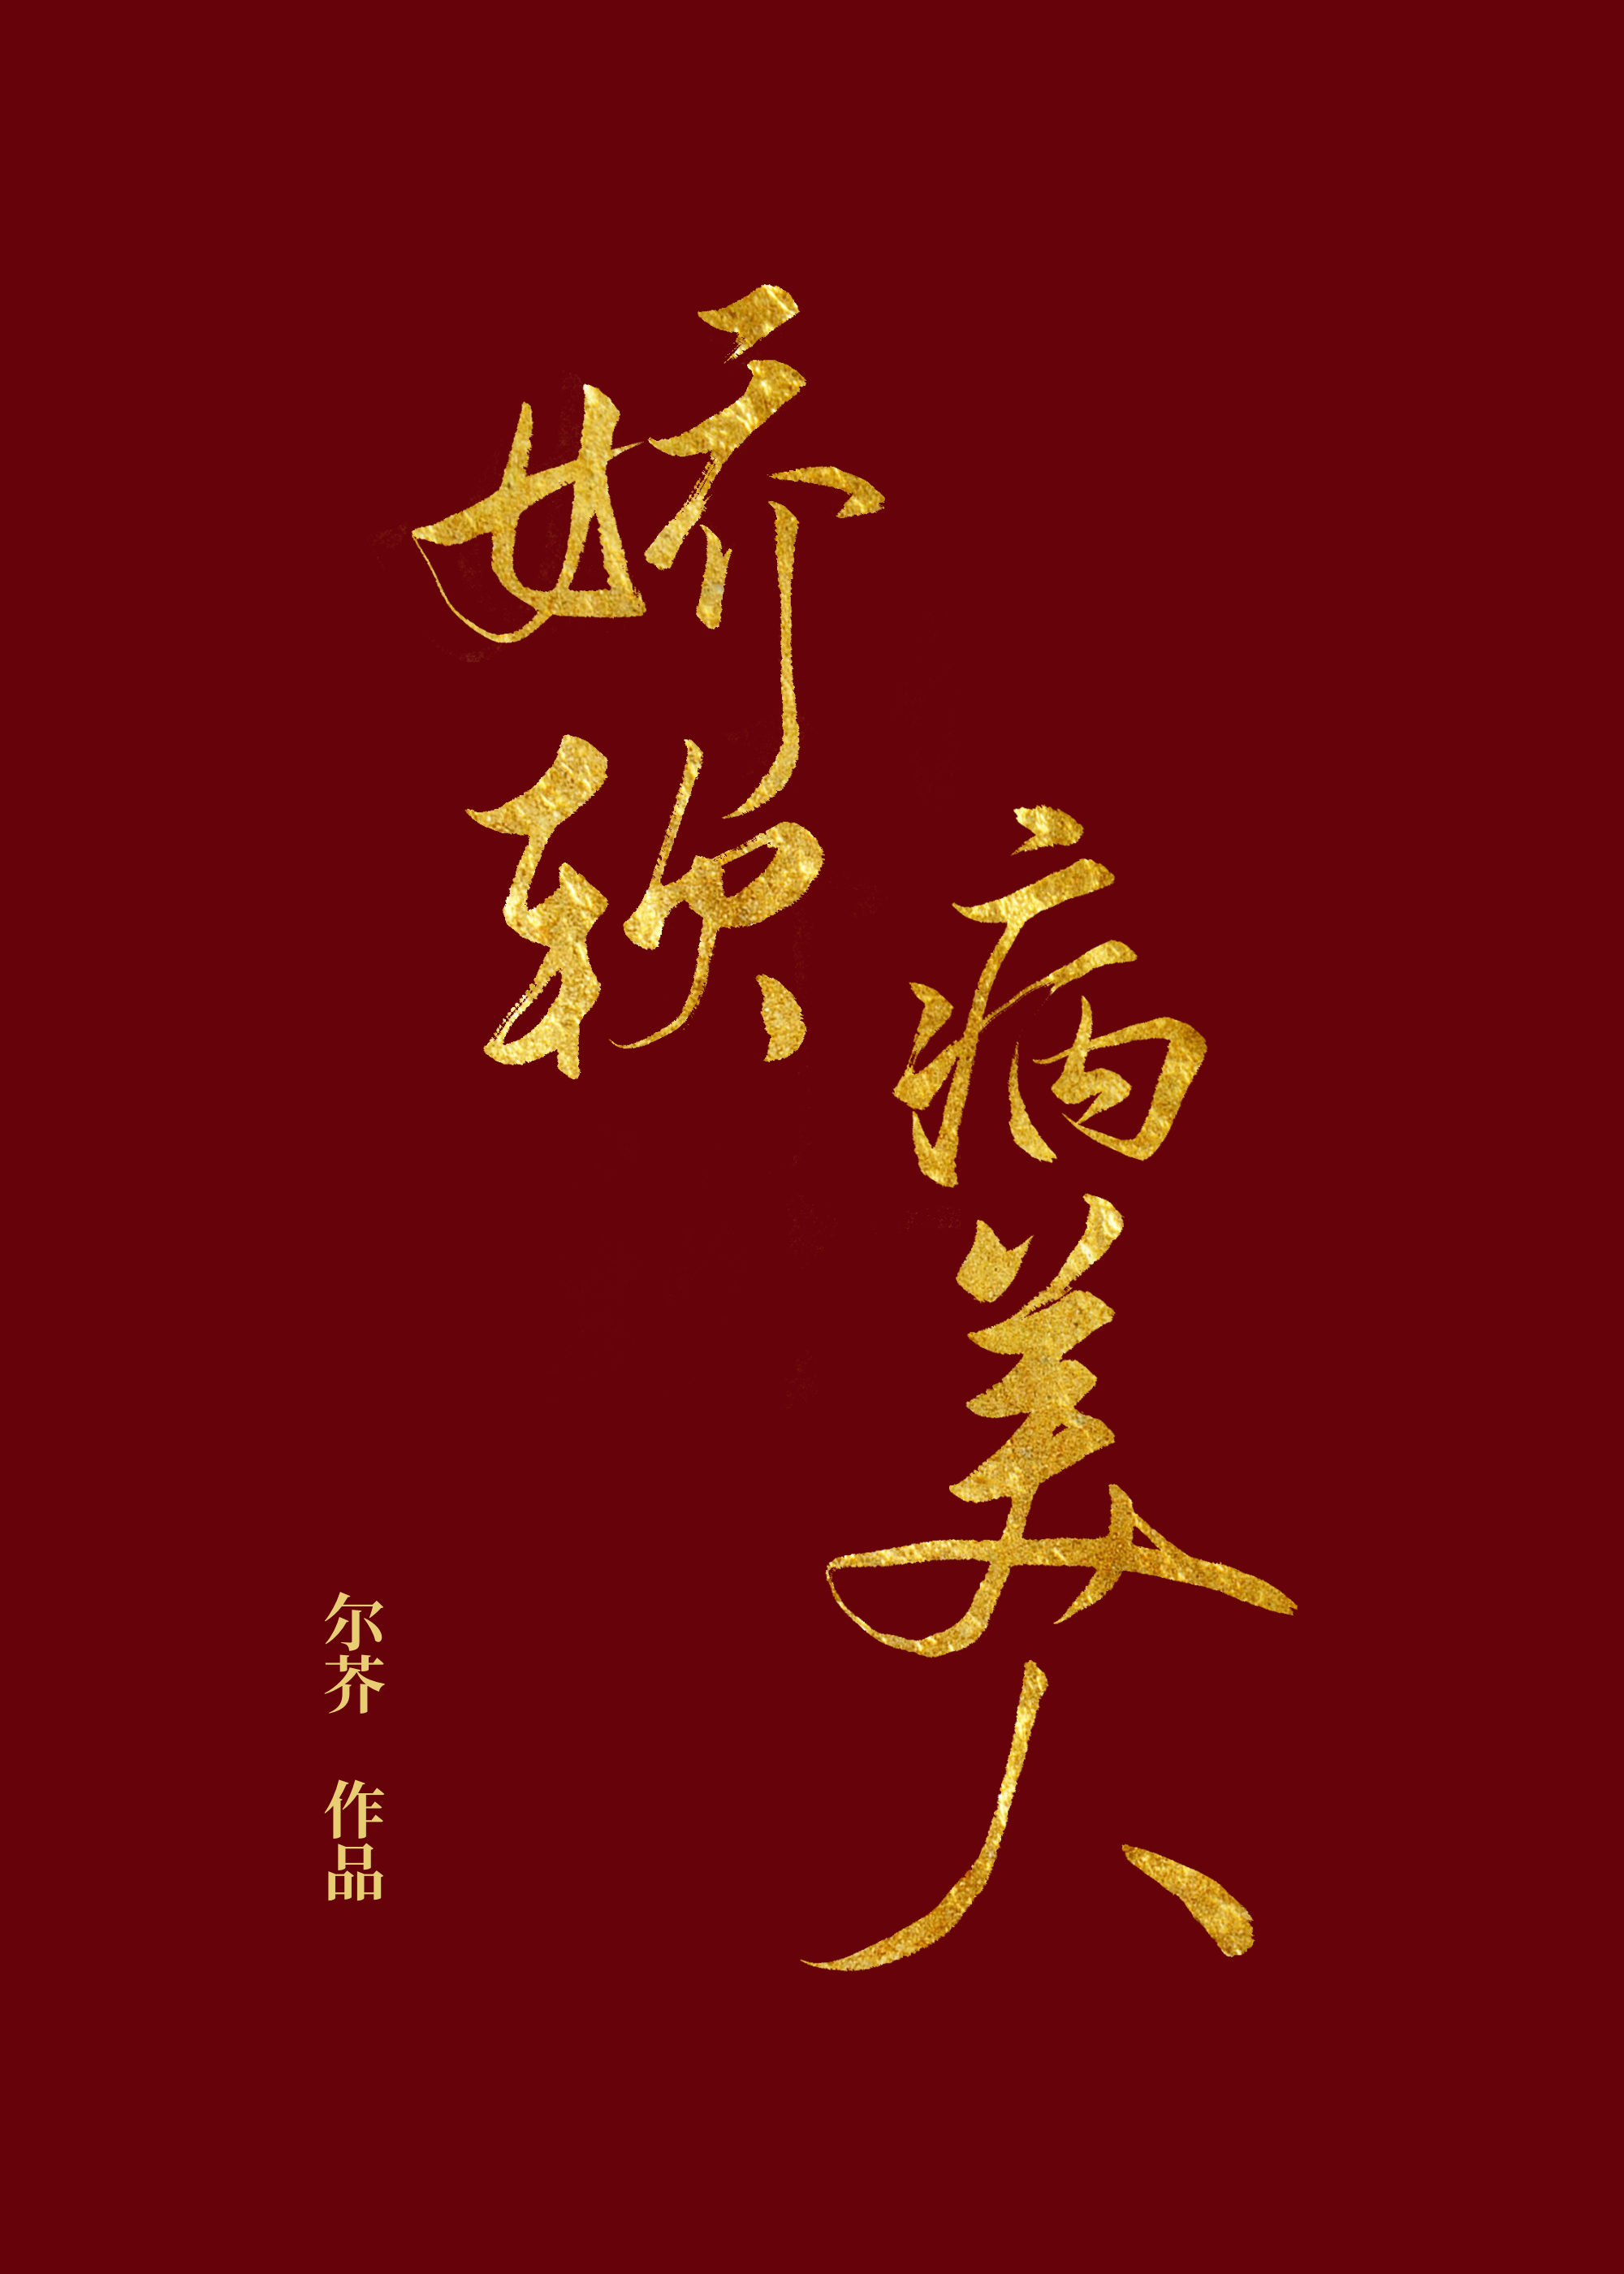 娇软
病美人
尔芥 作品